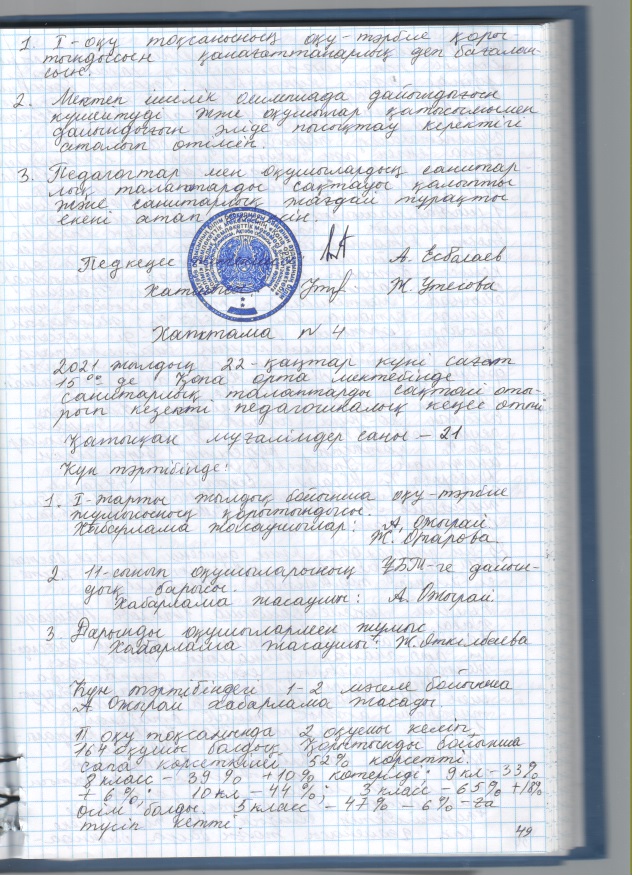 1. I-оқу тоқсанының оқу-тәрбие қоры-
тындысын қанағаттанарлық деп бағалан-
сын.
2. Мектеп ішілік олимпиада дайындығын
күшейтуді және оқушылар қатысымымен
дайындығын әліде пысықтау керектігі
аталып өтілсін.
3. Педагогтар мен оқушылардың санитар-
лық талаптарды сақтауы қалыпты
және санитарлық жағдай тұрақты
екені атап
Педкеңес А. Есбалаев
Ж. Утесова
Хаттама N 4
2021 жылдың 22-қаңтар күні сағат
15⁰⁰ де Қопа орта мектебінде
санитарлық талаптарды сақтай оты-
рып кезекті педагогикалық кеңес өтті
Қатысқан мұғалімдер саны - 21
Күн тәртібінде:
1. I-жарты жылдық бойынша оқу-тәрбие
жұмысының қорытындысы.
Хабарлама жасаушылар: А. Ожырай
Ж. Омарова
2. 11-сынып оқушыларының ҰБТ-ге дайын-
дық барысы.
Хабарлама жасаушы: А. Ожырай
3. Дарынды оқушылармен жұмыс
Хабарлама жасаушы: Ж. Өткелбаева
Күн тәртібіндегі 1-2 мәселе бойынша
А Ожырай хабарлама жасады.
II оқу тоқсанында 2 оқушы келіп,
164 оқушы болдық. Қорытынды бойынша
сапа көрсеткіші 52% көрсетті.
2 класс - 39% +10% көтерілді; 9 кл - 33%
+ 6%; 10 кл - 44%; 3 класс - 65% +18%
өсім болды. 5 класс - 47% - 6% -ға
түсіп кетті.
49